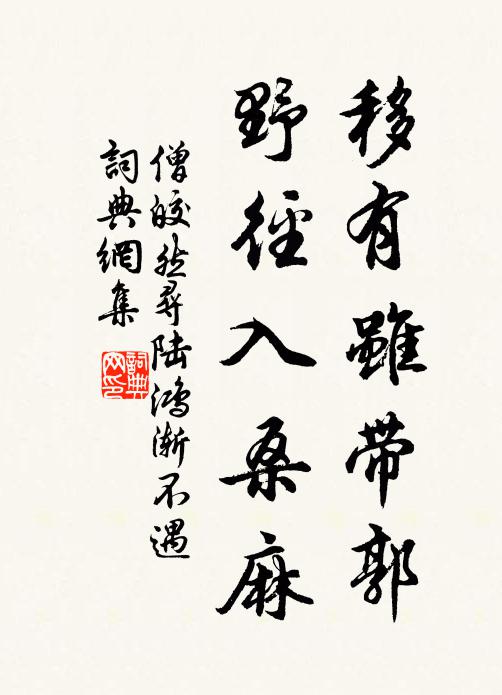 移有雖帶郭
野徑入桑麻
僧皎然尋陸鴻漸不遇
詞典網集
詞典網印